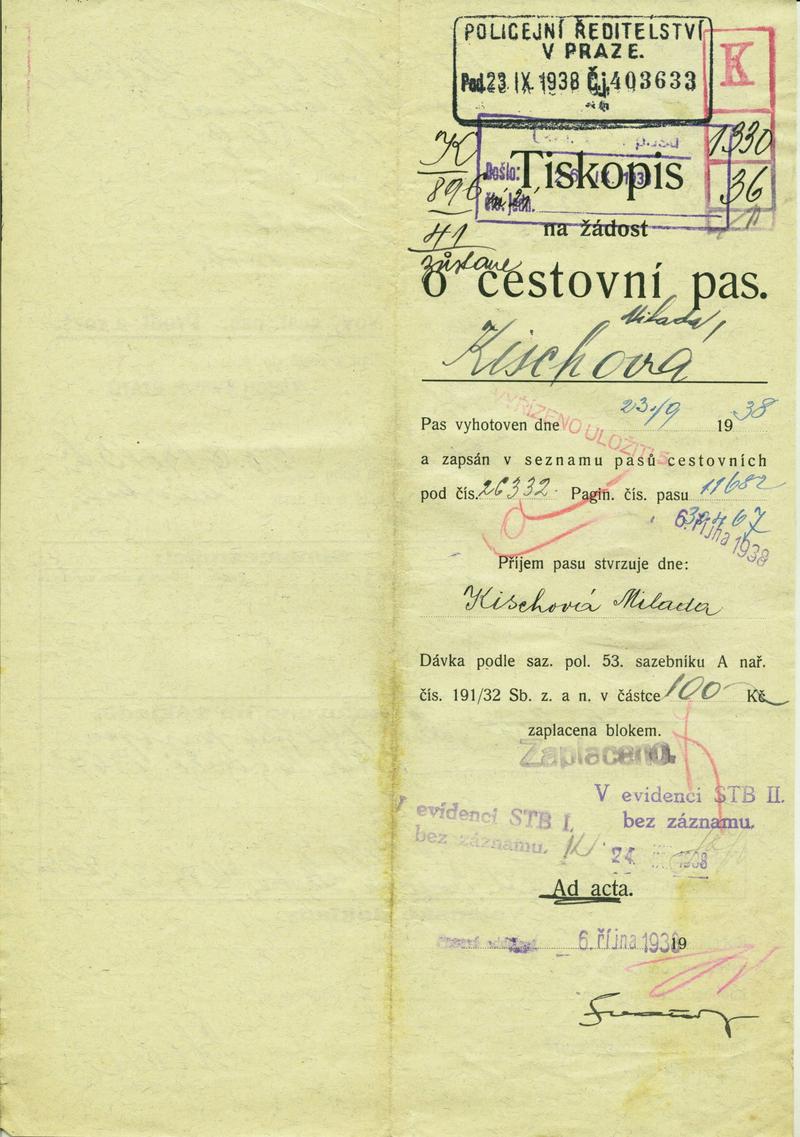 POLICEJNÍ ŘEDITELSTVÍ
V PRAZE.
Pod. 23. IX. 1938 Čj. 403633
K
1330
36
K
896
41
zůstane
Došlo:
Tiskopis
na žádost
o cestovní pas.
Milada,
Kischová
VYŘÍZENO ULOŽITI
Pas vyhotoven dne 23./9 1938
a zapsán v seznamu pasů cestovních
pod čís. 26332. Pagin. čís. pasu 11682
6. října 1938
Příjem pasu stvrzuje dne:
Kischová Milada
Dávka podle saz. pol. 53. sazebníku A nař.
čís. 191/32 Sb. z. a n. v částce 100 Kč
zaplacena blokem.
Zaplaceno.
V evidenci STB II.
bez záznamu.
V evidenci STB I.
bez záznamu.
24 1938
Ad acta.
6. října 1938 19